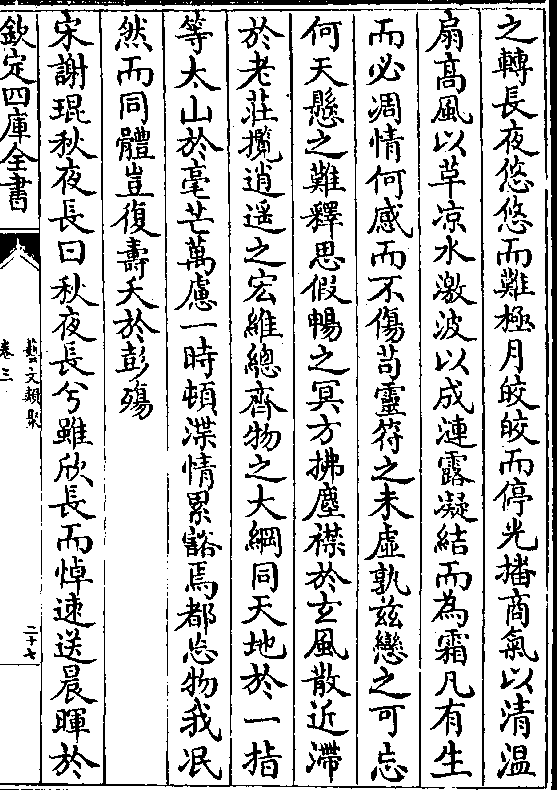 之轉長夜悠悠而難極月皎皎而停光播商氣以清温
扇高風以草凉水激波以成漣露凝結而為霜凡有生
而必凋情何感而不傷苟靈符之未虚孰兹戀之可忘
何天懸之難釋思假暢之冥方拂塵襟於𤣥風散近滯
於老莊攬逍遥之宏維總齊物之大綱同天地於一指
等太山於毫芒萬慮一時頓渫情累豁焉都忘物我泯
然而同體豈復壽夭於彭殤
宋謝琨秋夜長曰秋夜長兮雖欣長而悼速送晨暉於
欽定四庫全書
藝文類聚
卷三
二十七